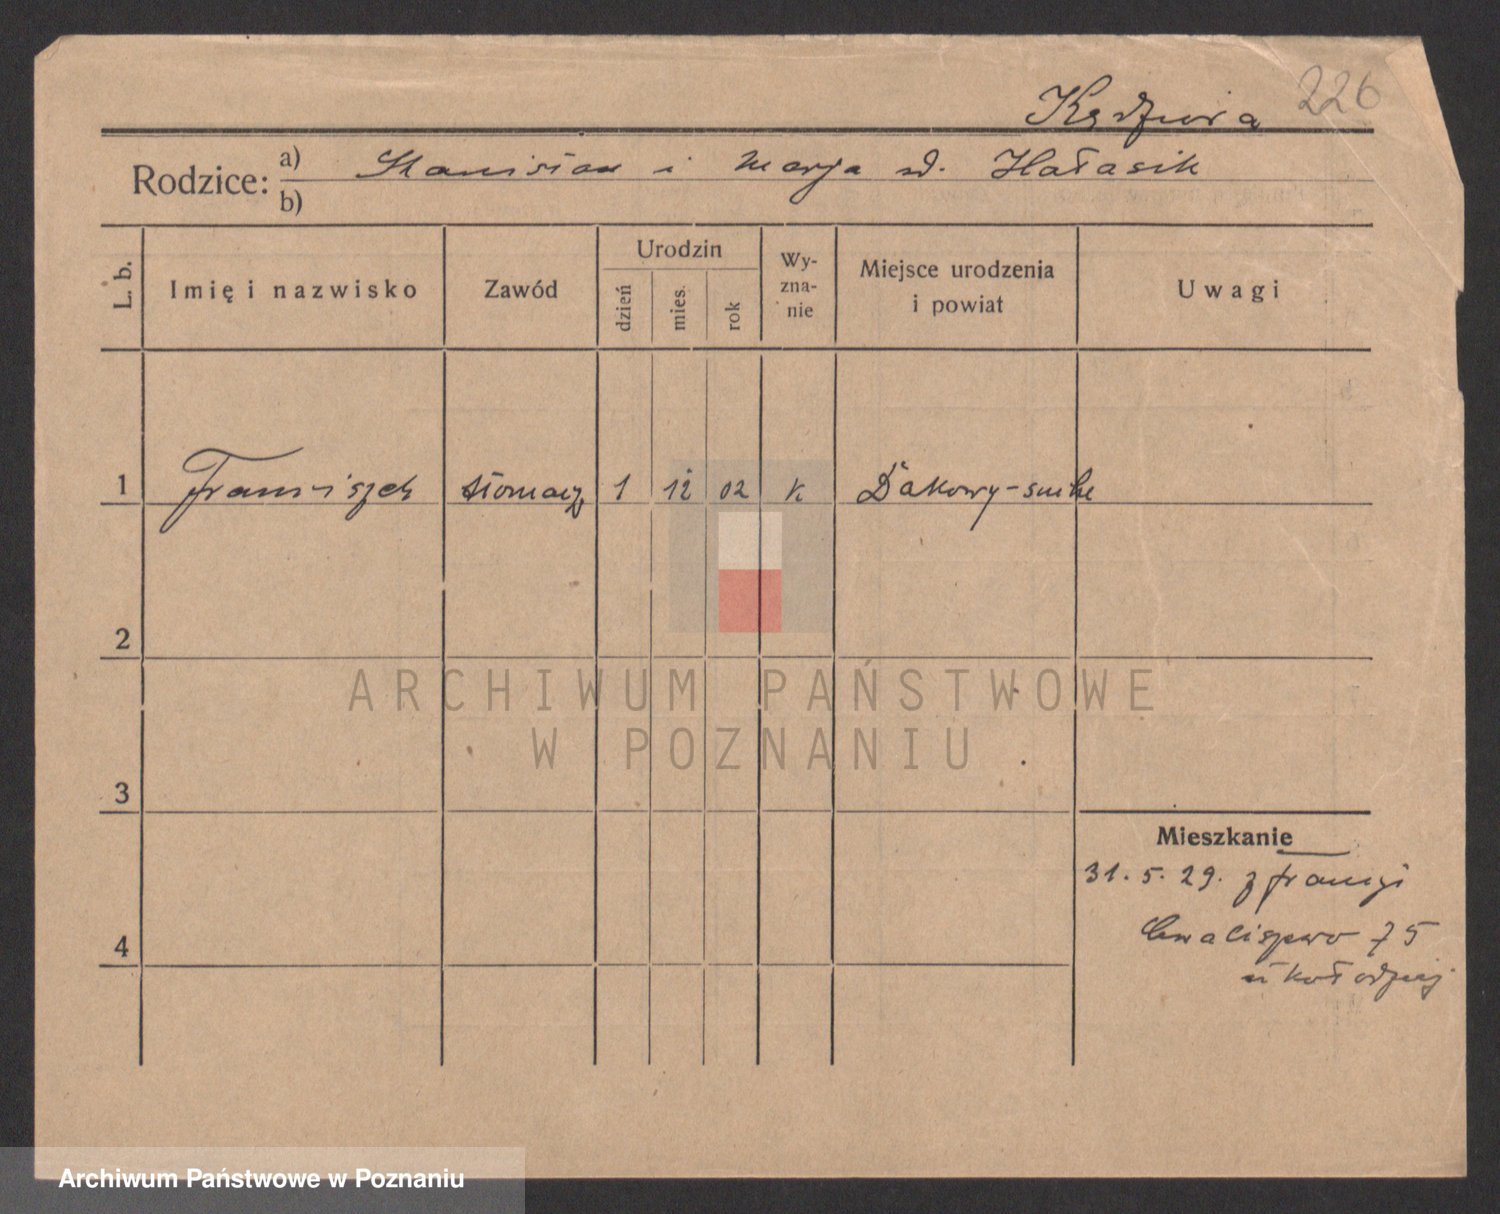 226
Kędziora
Rodzice: a) Stanisław i Marja zd. Hałasik
b)
L. b.
Imię i nazwisko
Zawód
Urodzin
dzień
mies.
rok
Wy-
zna-
nie
Miejsce urodzenia
i powiat
Uwagi
1 Franciszek 1 12 02 k Dakowy-suche
2
3
4
Mieszkanie
31. 5. 29. z Francji
75
ARCHIWUM PAŃSTWOWE
W POZNANIU
Archiwum Państwowe w Poznaniu